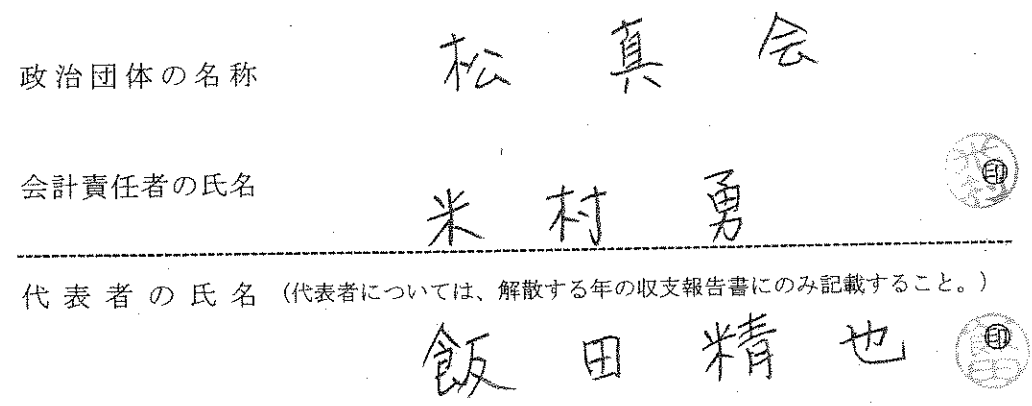 政治団体の名称 松真会
会計責任者の氏名 米村勇 印
代表者の氏名 (代表者については、解散する年の収支報告書にのみ記載すること。)
飯田精也 印